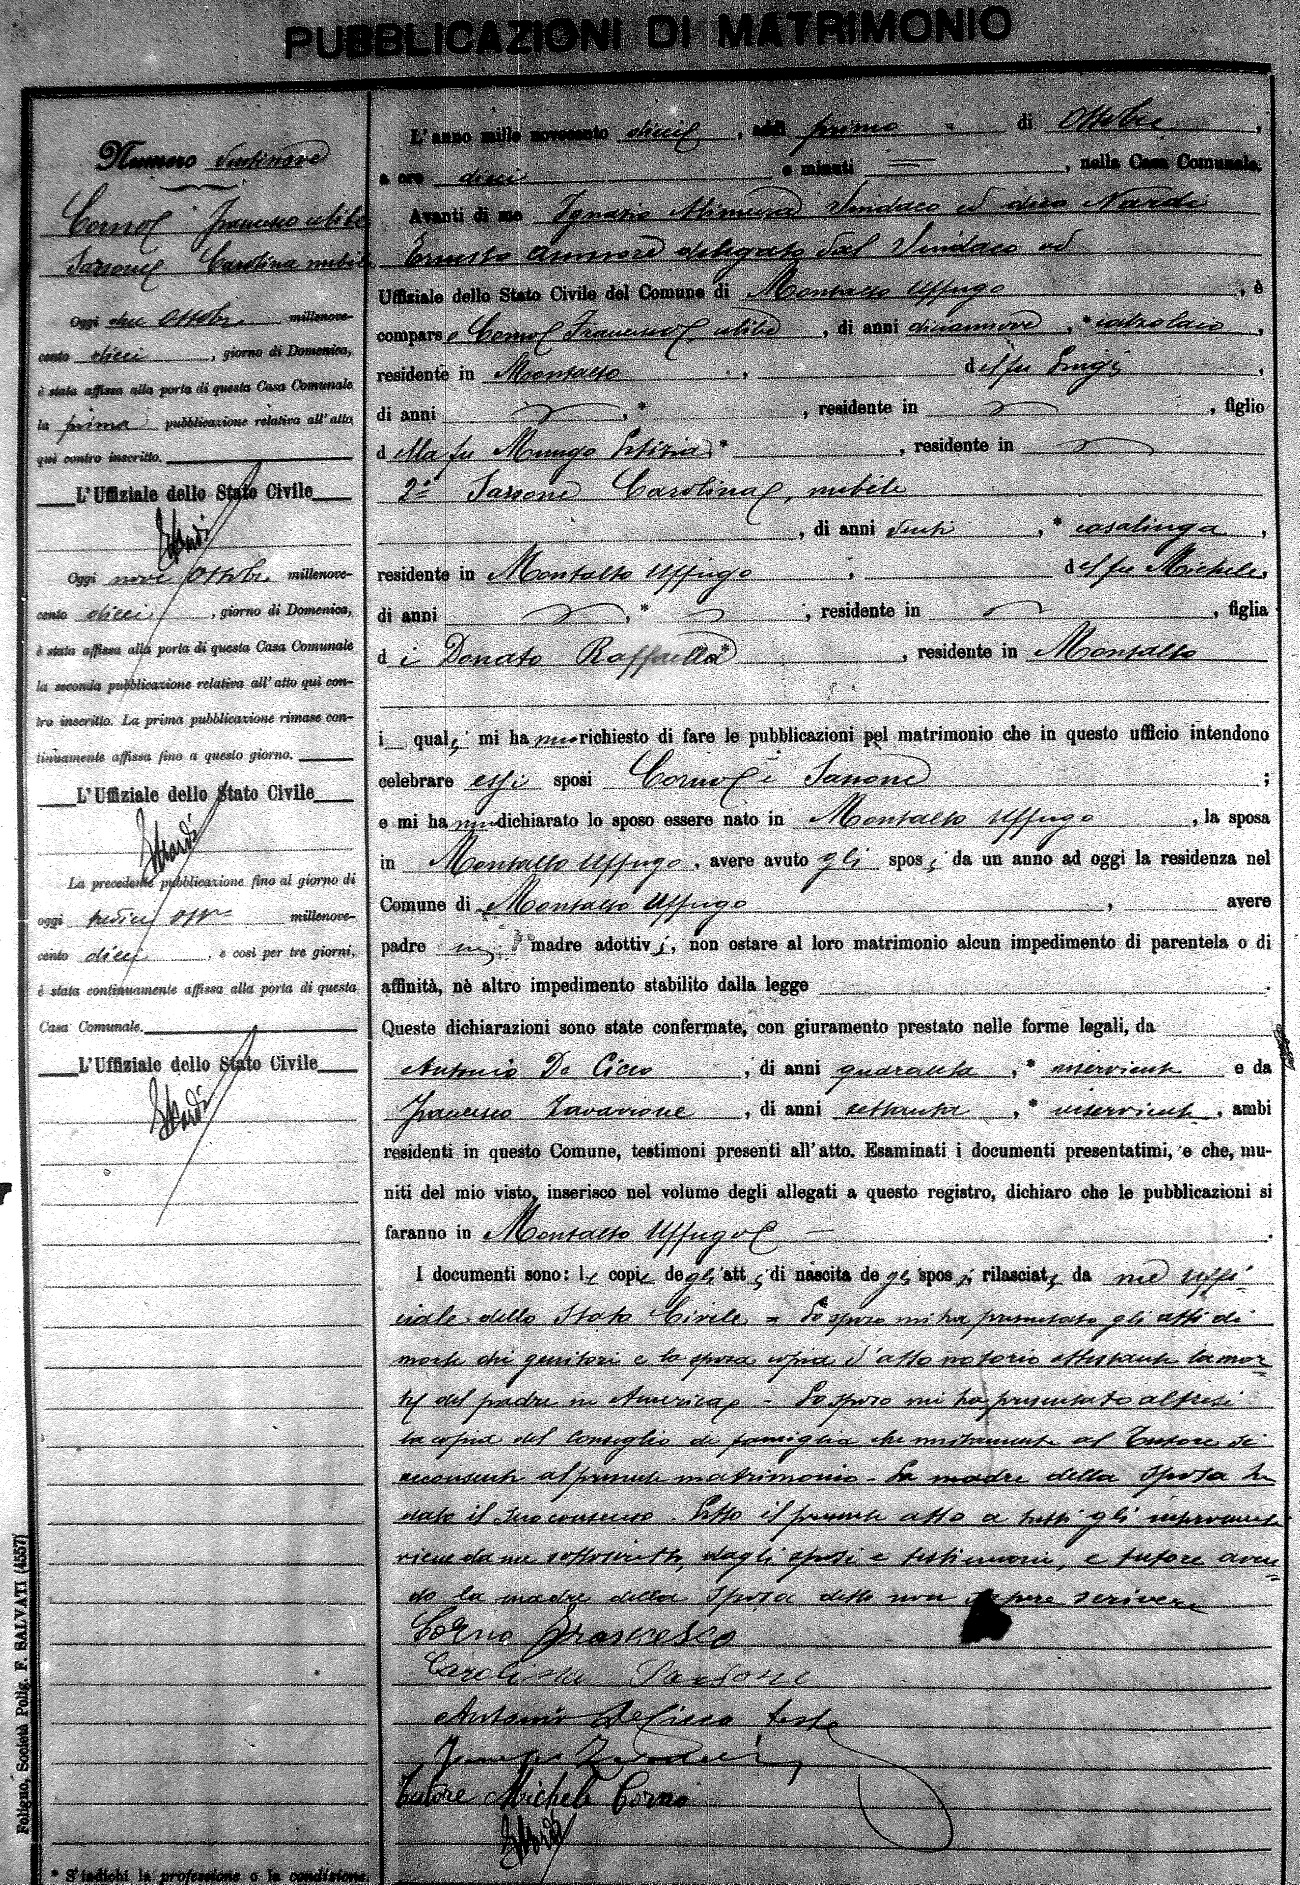 PUBBLICAZIONI DI MATRIMONIO
Numero Ventinove
Corno Francesco celibe
Sassone Carolina nubile
Oggi due Ottobre millenove-
cento dieci, giorno di Domenica,
è stata affissa alla porta di questa Casa Comunale
la prima pubblicazione relativa all'atto
qui contro inscritto.
L'Uffiziale dello Stato Civile
ENardi
Oggi nove Ottobre millenove-
cento dieci, giorno di Domenica,
è stata affissa alla porta di questa Casa Comunale
la seconda pubblicazione relativa all'atto qui con-
tro inscritto. La prima pubblicazione rimase con-
tinuamente affissa fino a questo giorno.
L'Uffiziale dello Stato Civile
ENardi
La precedente pubblicazione fino al giorno di
oggi Ott.re millenove-
cento dieci, e così per tre giorni,
è stata continuamente affissa alla porta di questa
Casa Comunale.
L'Uffiziale dello Stato Civile
ENardi
* S'indichi la professione o la condizione.
Foligno, Società Polig. F. SALVATI (4557)
L'anno mille novecento dieci, addì primo di Ottobre,
a ore dieci e minuti =, nella Casa Comunale.
Avanti di me Ignazio Alimena Sindaco ed dico Nardi
Ernesto assessore delegato dal Sindaco ed
Uffiziale dello Stato Civile del Comune di Montalto Uffugo, è
comparso Corno Francesco, celibe, di anni diciannove, * calzolaio,
residente in Montalto, del fu Luigi,
di anni , * , residente in , figlio
della fu Mungo Letizia * , residente in
2° Sassone Carolina, nubile
, di anni venti, * casalinga,
residente in Montalto Uffugo, del fu Michele,
di anni , * , residente in , figlia
di Donato Raffaella *, residente in Montalto
i quali mi hanno richiesto di fare le pubblicazioni pel matrimonio che in questo ufficio intendono
celebrare essi sposi Corno e Sassone ;
e mi hanno dichiarato lo sposo essere nato in Montalto Uffugo, la sposa
in Montalto Uffugo, avere avuto gli sposi da un anno ad oggi la residenza nel
Comune di Montalto Uffugo, avere
padre madre adottivi, non ostare al loro matrimonio alcun impedimento di parentela o di
affinità, nè altro impedimento stabilito dalla legge .
Queste dichiarazioni sono state confermate, con giuramento prestato nelle forme legali, da
Antonio De Cicco, di anni quaranta, * inserviente e da
Francesco Tavarrone, di anni settanta, * inserviente, ambi
residenti in questo Comune, testimoni presenti all'atto. Esaminati i documenti presentatimi, e che, mu-
niti del mio visto, inserisco nel volume degli allegati a questo registro, dichiaro che le pubblicazioni si
faranno in Montalto Uffugo .
I documenti sono: le copie degli atti di nascita degli sposi rilasciate da me Uffi-
ciale dello Stato Civile = Lo sposo mi ha presentato gli atti di
morte dei genitori e la sposa copia d'atto notorio attestante la mor-
te del padre in America - Lo sposo mi ha presentato altresì
la copia del Consiglio di famiglia che unitamente al Tutore si
acconsente al presente matrimonio - La madre della sposa ha
dato il suo consenso. Letto il presente atto a tutti gli intervenuti
viene da me sottoscritto, dagli sposi e testimoni, e tutore aven-
do la madre della sposa detto non sapere scrivere
Corno Francesco
Carolina Sassone
Antonio De Cicco teste
Tutore Michele Corno
ENardi